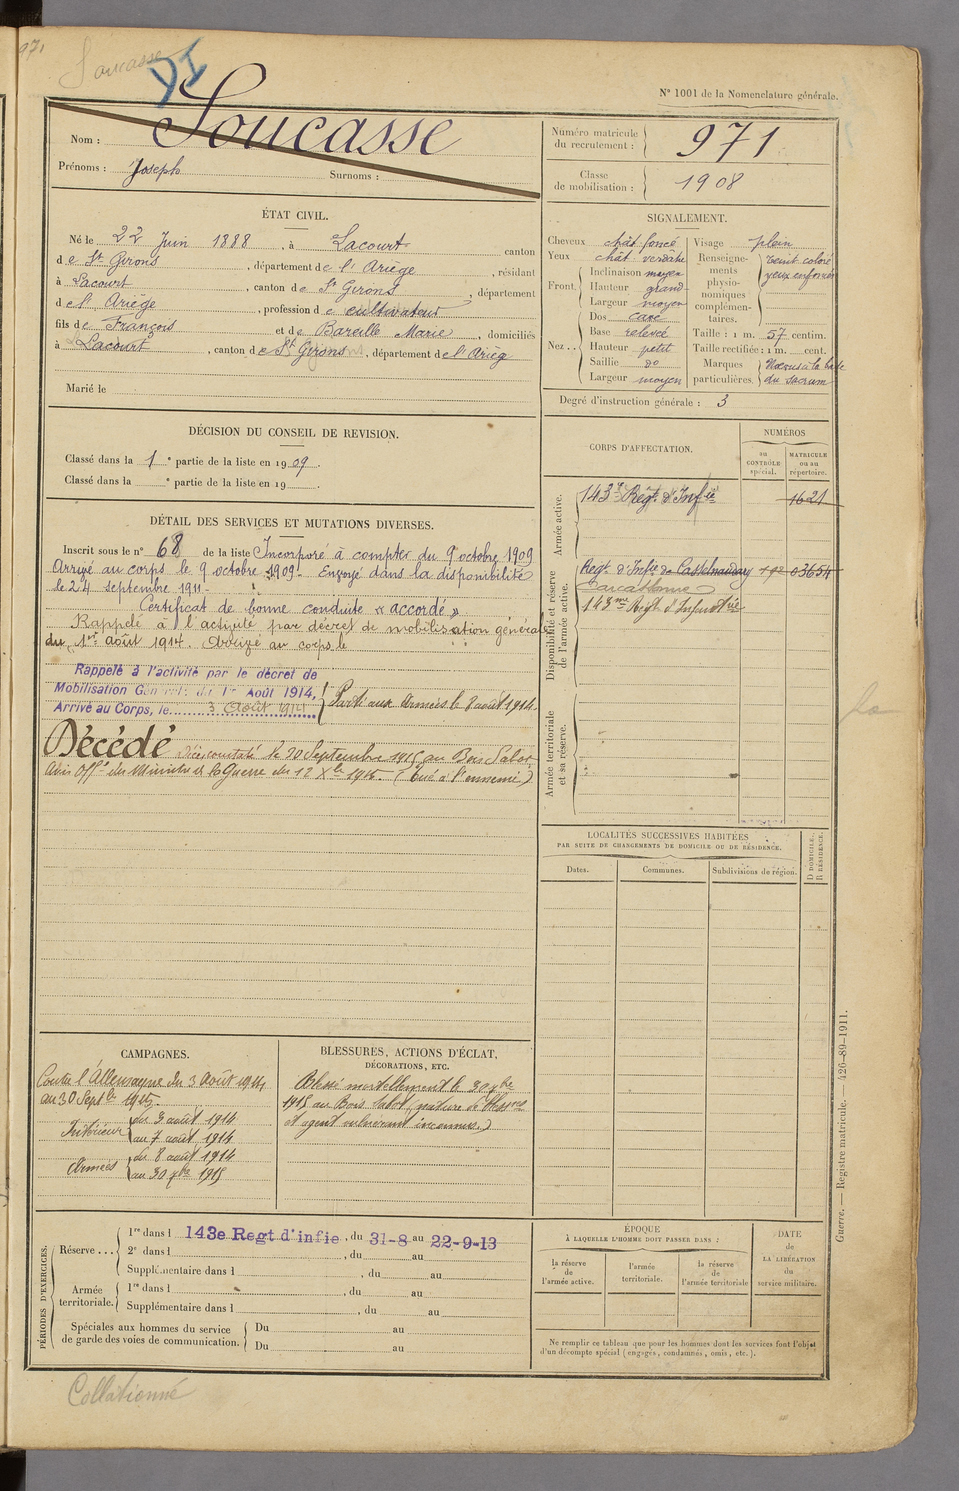 971
Soucasse
N° 1001 de la Nomenclature générale.
Nom : Soucasse
Prénoms : Joseph Surnoms :
Numéro matricule du recrutement : 971
Classe de mobilisation : 1908
ÉTAT CIVIL.
Né le 22 Juin 1888, à Lacourt canton
de St Girons, département de l'Ariège, résidant
à Lacourt, canton de St Girons, département
de l'Ariège, profession de cultivateur
fils de François et de Bareille Marie, domiciliés
à Lacourt, canton de St Girons, département de l'Arièg
Marié le
SIGNALEMENT.
Cheveux chât foncé
Yeux chât verdâtre
Front. Inclinaison moyen
Hauteur grand
Largeur moyen
Nez.. Dos cave
Base relevé
Hauteur petit
Saillie do
Largeur moyen
Visage plein
Renseignements physionomiques complémentaires. teint coloré
yeux enfoncés
Taille : 1 m. 57 centim.
Taille rectifiée : 1 m. cent.
Marques particulières. à la base
du sacrum
Degré d'instruction générale : 3
DÉCISION DU CONSEIL DE REVISION.
Classé dans la 1e partie de la liste en 1909.
Classé dans la e partie de la liste en 19
DÉTAIL DES SERVICES ET MUTATIONS DIVERSES.
Inscrit sous le n° 68 de la liste Incorporé à compter du 9 octobre 1909
Arrivé au corps le 9 octobre 1909 - Envoyé dans la disponibilité
le 24 septembre 1911 -
Certificat de bonne conduite « accordé »
Rappelé à l'activité par décret de mobilisation générale
du 1er août 1914. Arrivé au corps le
Rappelé à l'activité par le décret de
Mobilisation Générale du 1er Août 1914,
Arrivé au Corps, le 3 Août 1914
Parti aux Armées le 8 août 1914.
Décédé Décès constaté le 30 Septembre 1915 au Bois Sabot
Avis Offel du Ministre de la Guerre du 12 Xbre 1915. (Tué à l'ennemi)
CORPS D'AFFECTATION.
NUMÉROS
au CONTRÔLE spécial.
MATRICULE ou au répertoire.
Armée active.
143e Régt d'Infie 1621
Disponibilité et réserve de l'armée active.
Regt d'Infie de Castelnaudary 03654
Carcassonne
143me Régt d'Infanterie
Armée territoriale et sa réserve.
LOCALITÉS SUCCESSIVES HABITÉES
PAR SUITE DE CHANGEMENTS DE DOMICILE OU DE RÉSIDENCE.
Dates. Communes. Subdivisions de région. D DOMICILE. R RÉSIDENCE.
CAMPAGNES.
Contre l'Allemagne du 3 Août 1914
au 30 Septbre 1915.
Intérieur du 3 août 1914
au 7 août 1914
Armées du 8 août 1914
au 30 7bre 1915
BLESSURES, ACTIONS D'ÉCLAT,
DÉCORATIONS, ETC.
Blessé mortellement le 30 7bre
1915 au Bois Sabot (nature de blessres
et agent vulnérant inconnus.)
PÉRIODES D'EXERCICES.
Réserve... 1re dans l 143e Regt d'infie, du 31-8 au 22-9-13
2e dans l , du au
Supplémentaire dans l , du au
Armée territoriale. 1re dans l , du au
Supplémentaire dans l , du au
Spéciales aux hommes du service de garde des voies de communication. Du au
Du au
ÉPOQUE
À LAQUELLE L'HOMME DOIT PASSER DANS :
la réserve de l'armée active.
l'armée territoriale.
la réserve de l'armée territoriale
DATE de LA LIBÉRATION du service militaire.
Ne remplir ce tableau que pour les hommes dont les services font l'objet
d'un décompte spécial (engagés, condamnés, omis, etc.).
Guerre. — Registre matricule. — 426-89-1911.
Collationné